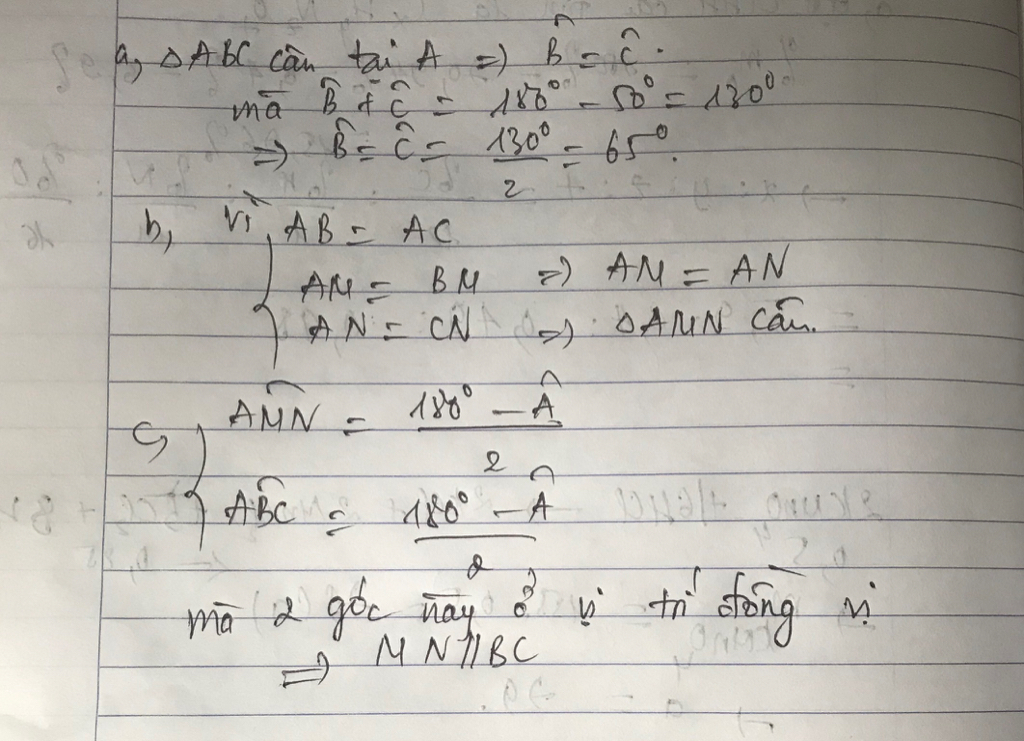 a, △ABC cân tại A => B̂ = Ĉ.
mà B̂ + Ĉ = 180° - 50° = 130°
=> B̂ = Ĉ = 130°/2 = 65°.
b, vì AB = AC
AM = BM => AM = AN
AN = CN => △AMN cân.
c, AMN = (180° - Â)/2
ABC = (180° - Â)/2
mà 2 góc này ở vị trí đồng vị
=> MN//BC